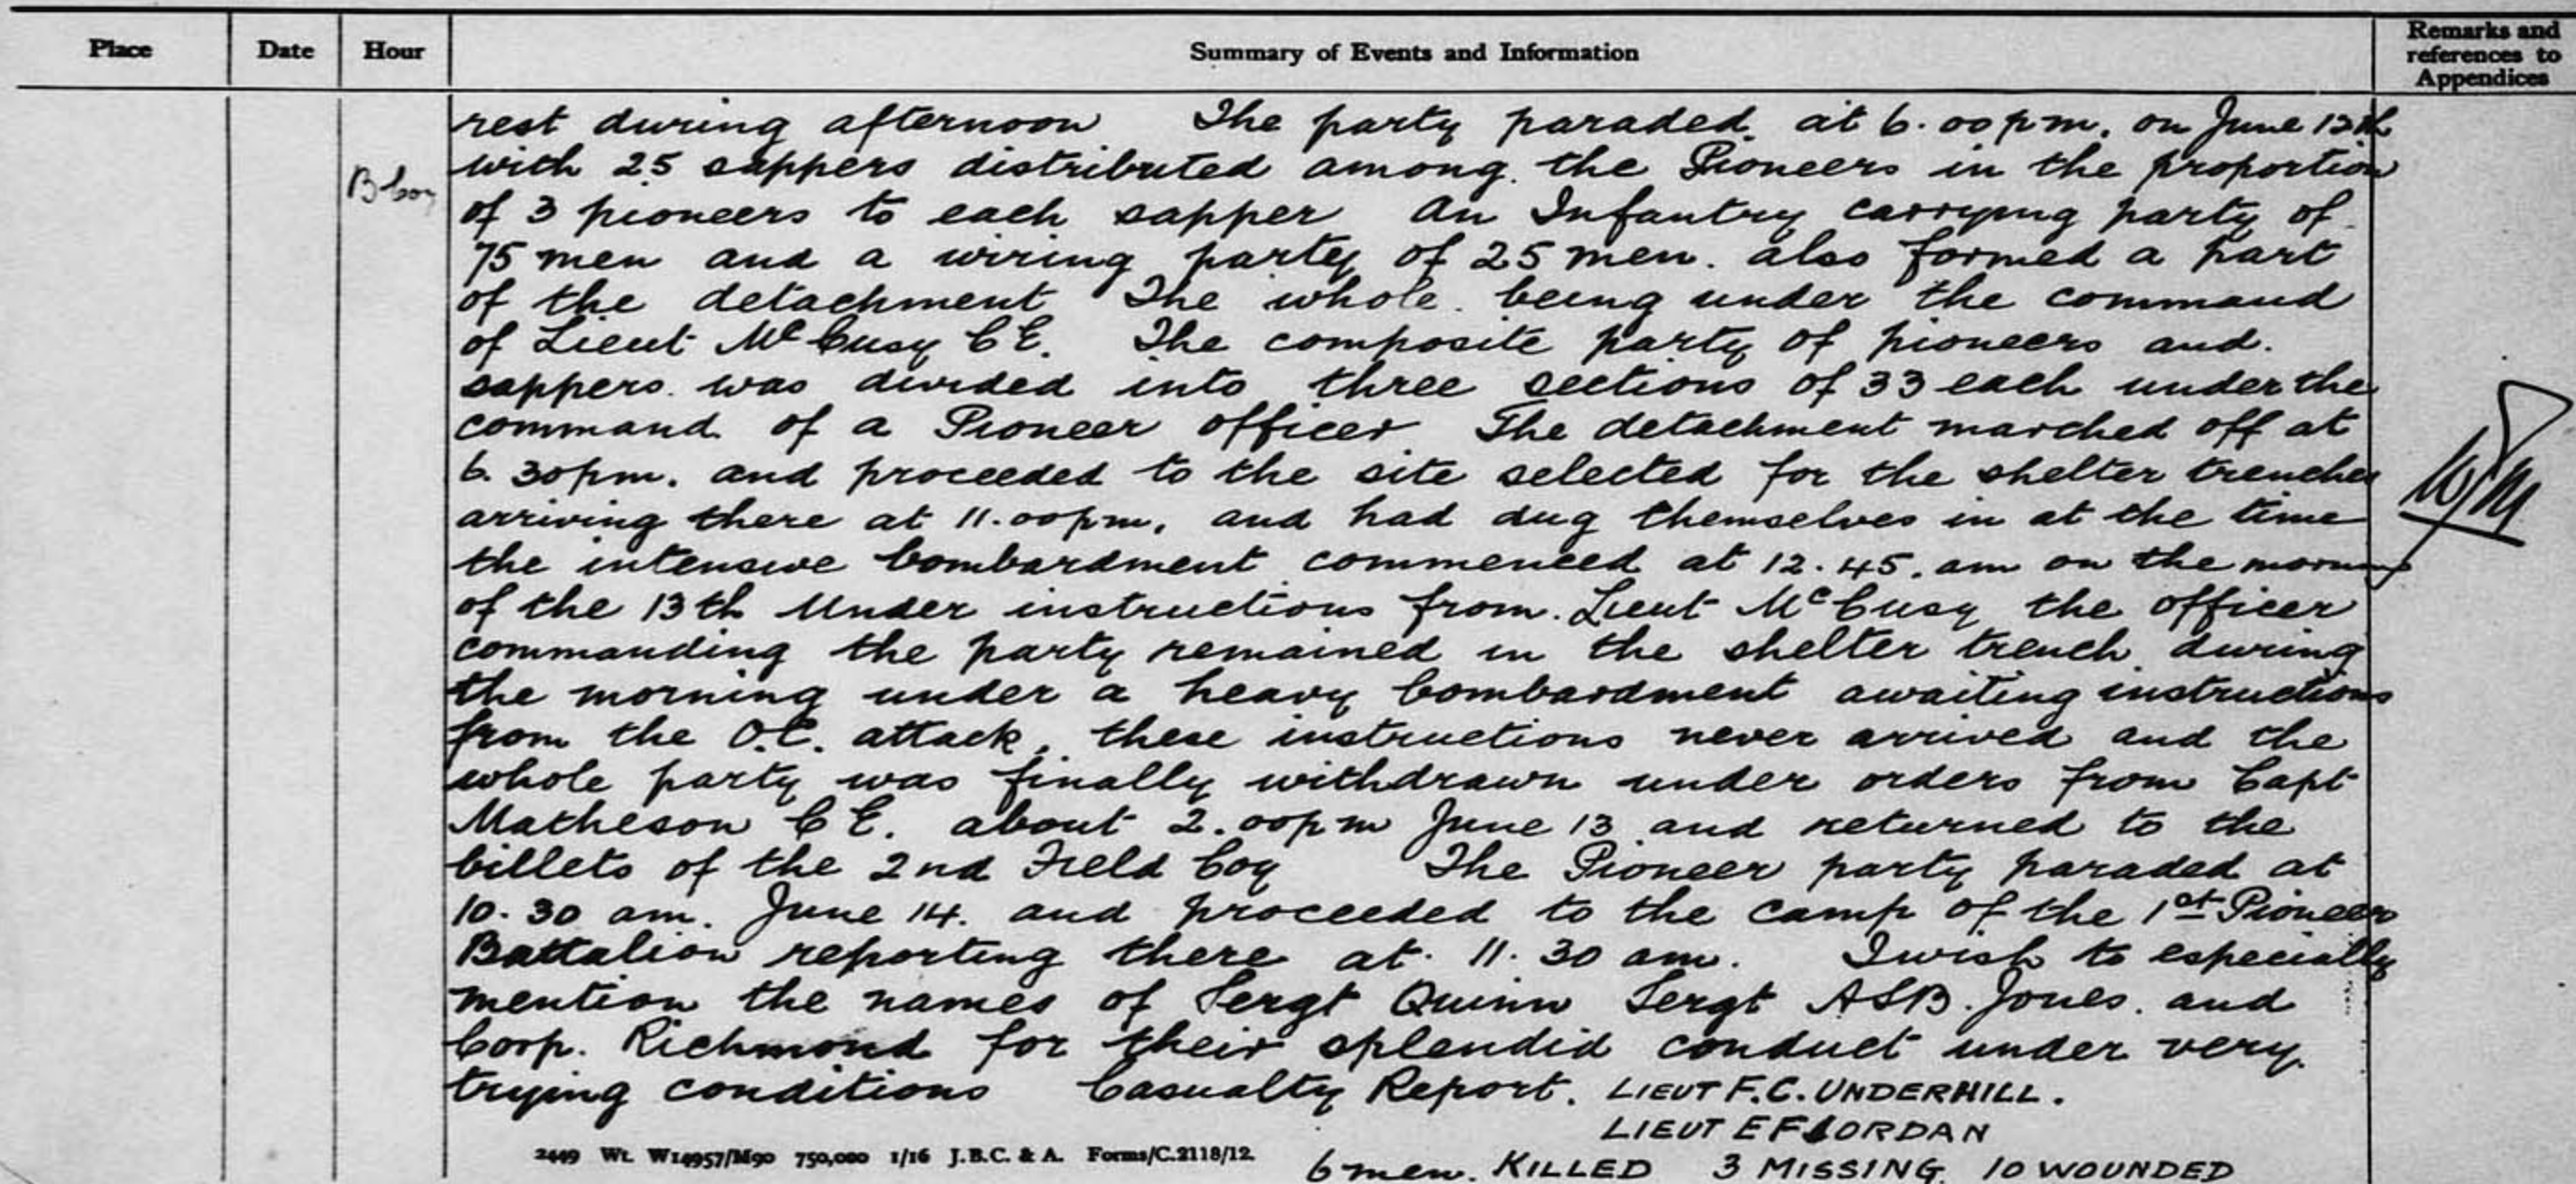 Place Date Hour Summary of Events and Information Remarks and references to Appendices
rest during afternoon The party paraded at 6.00 pm. on June 12th
with 25 sappers distributed among the Pioneers in the proportion
B Coy
of 3 pioneers to each sapper An Infantry carrying party of
75 men and a wiring party of 25 men. also formed a part
of the detachment The whole being under the command
of Lieut McCusy C E. The composite party of pioneers and.
sappers was divided into three sections of 33 each under the
command of a Pioneer officer The detachment marched off at
6.30 pm. and proceeded to the site selected for the shelter trenches
arriving there at 11.00 pm, and had dug themselves in at the time
the intensive bombardment commenced at 12.45. am on the morning
of the 13th Under instructions from. Lieut McCusy the officer
commanding the party remained in the shelter trench during
the morning under a heavy bombardment awaiting instructions
from the O.C. attack, these instructions never arrived and the
whole party was finally withdrawn under orders from Capt
Matheson C E. about 2.00 pm June 13 and returned to the
billets of the 2nd Field Coy The Pioneer party paraded at
10.30 am. June 14. and proceeded to the camp of the 1st Pioneer
Battalion reporting there at 11.30 am. I wish to especially
mention the names of Sergt Quinn Sergt ASB. Jones. and
Corp. Richmond for their splendid conduct under very
trying conditions Casualty Report. LIEUT F.C. UNDERHILL.
LIEUT E F JORDAN
2449 Wt. W14957/M90 750,000 1/16 J.B.C. & A. Forms/C.2118/12.
6 men. KILLED 3 MISSING. 10 WOUNDED